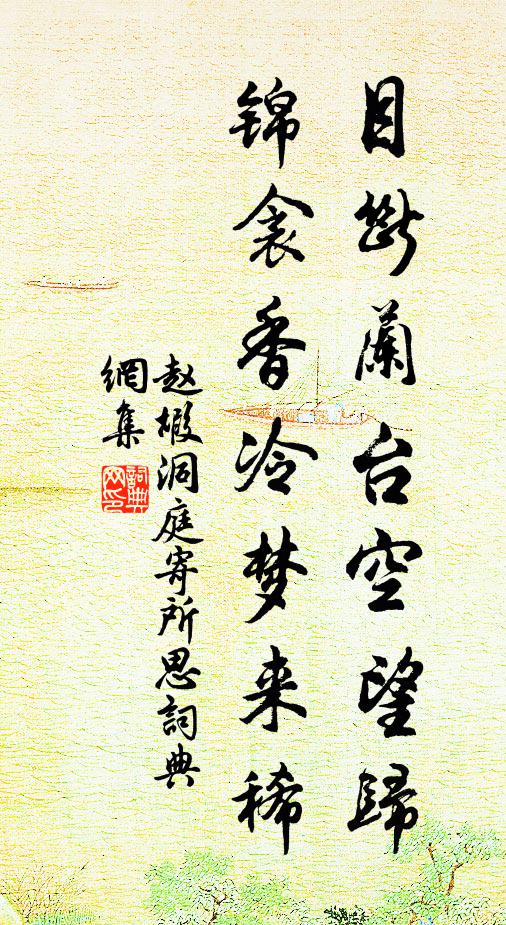 目断蘭台空望歸
锦衾香冷梦来稀
赵嘏洞庭寄所思詞典
網集
詞典网印